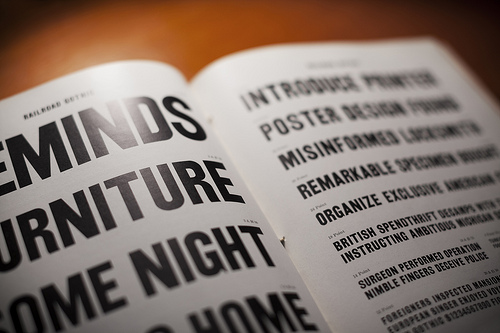 RAILROAD GOTHIC
EMINDS
URNITURE
OME NIGHT
HOME
INTRODUCE PRINTER
POSTER DESIGN FOUND
MISINFORMED LOCKSMITH
REMARKABLE SPECIMEN
ORGANIZE EXCLUSIVE AMERICAN
BRITISH SPENDTHRIFT DECAMPS
INSTRUCTING AMBITIOUS
SURGEON PERFORMED OPERATION
NIMBLE FINGERS DECEIVE POLICE
FOREIGNERS INSPECTED
EUROPEAN SINGER ENJOYED